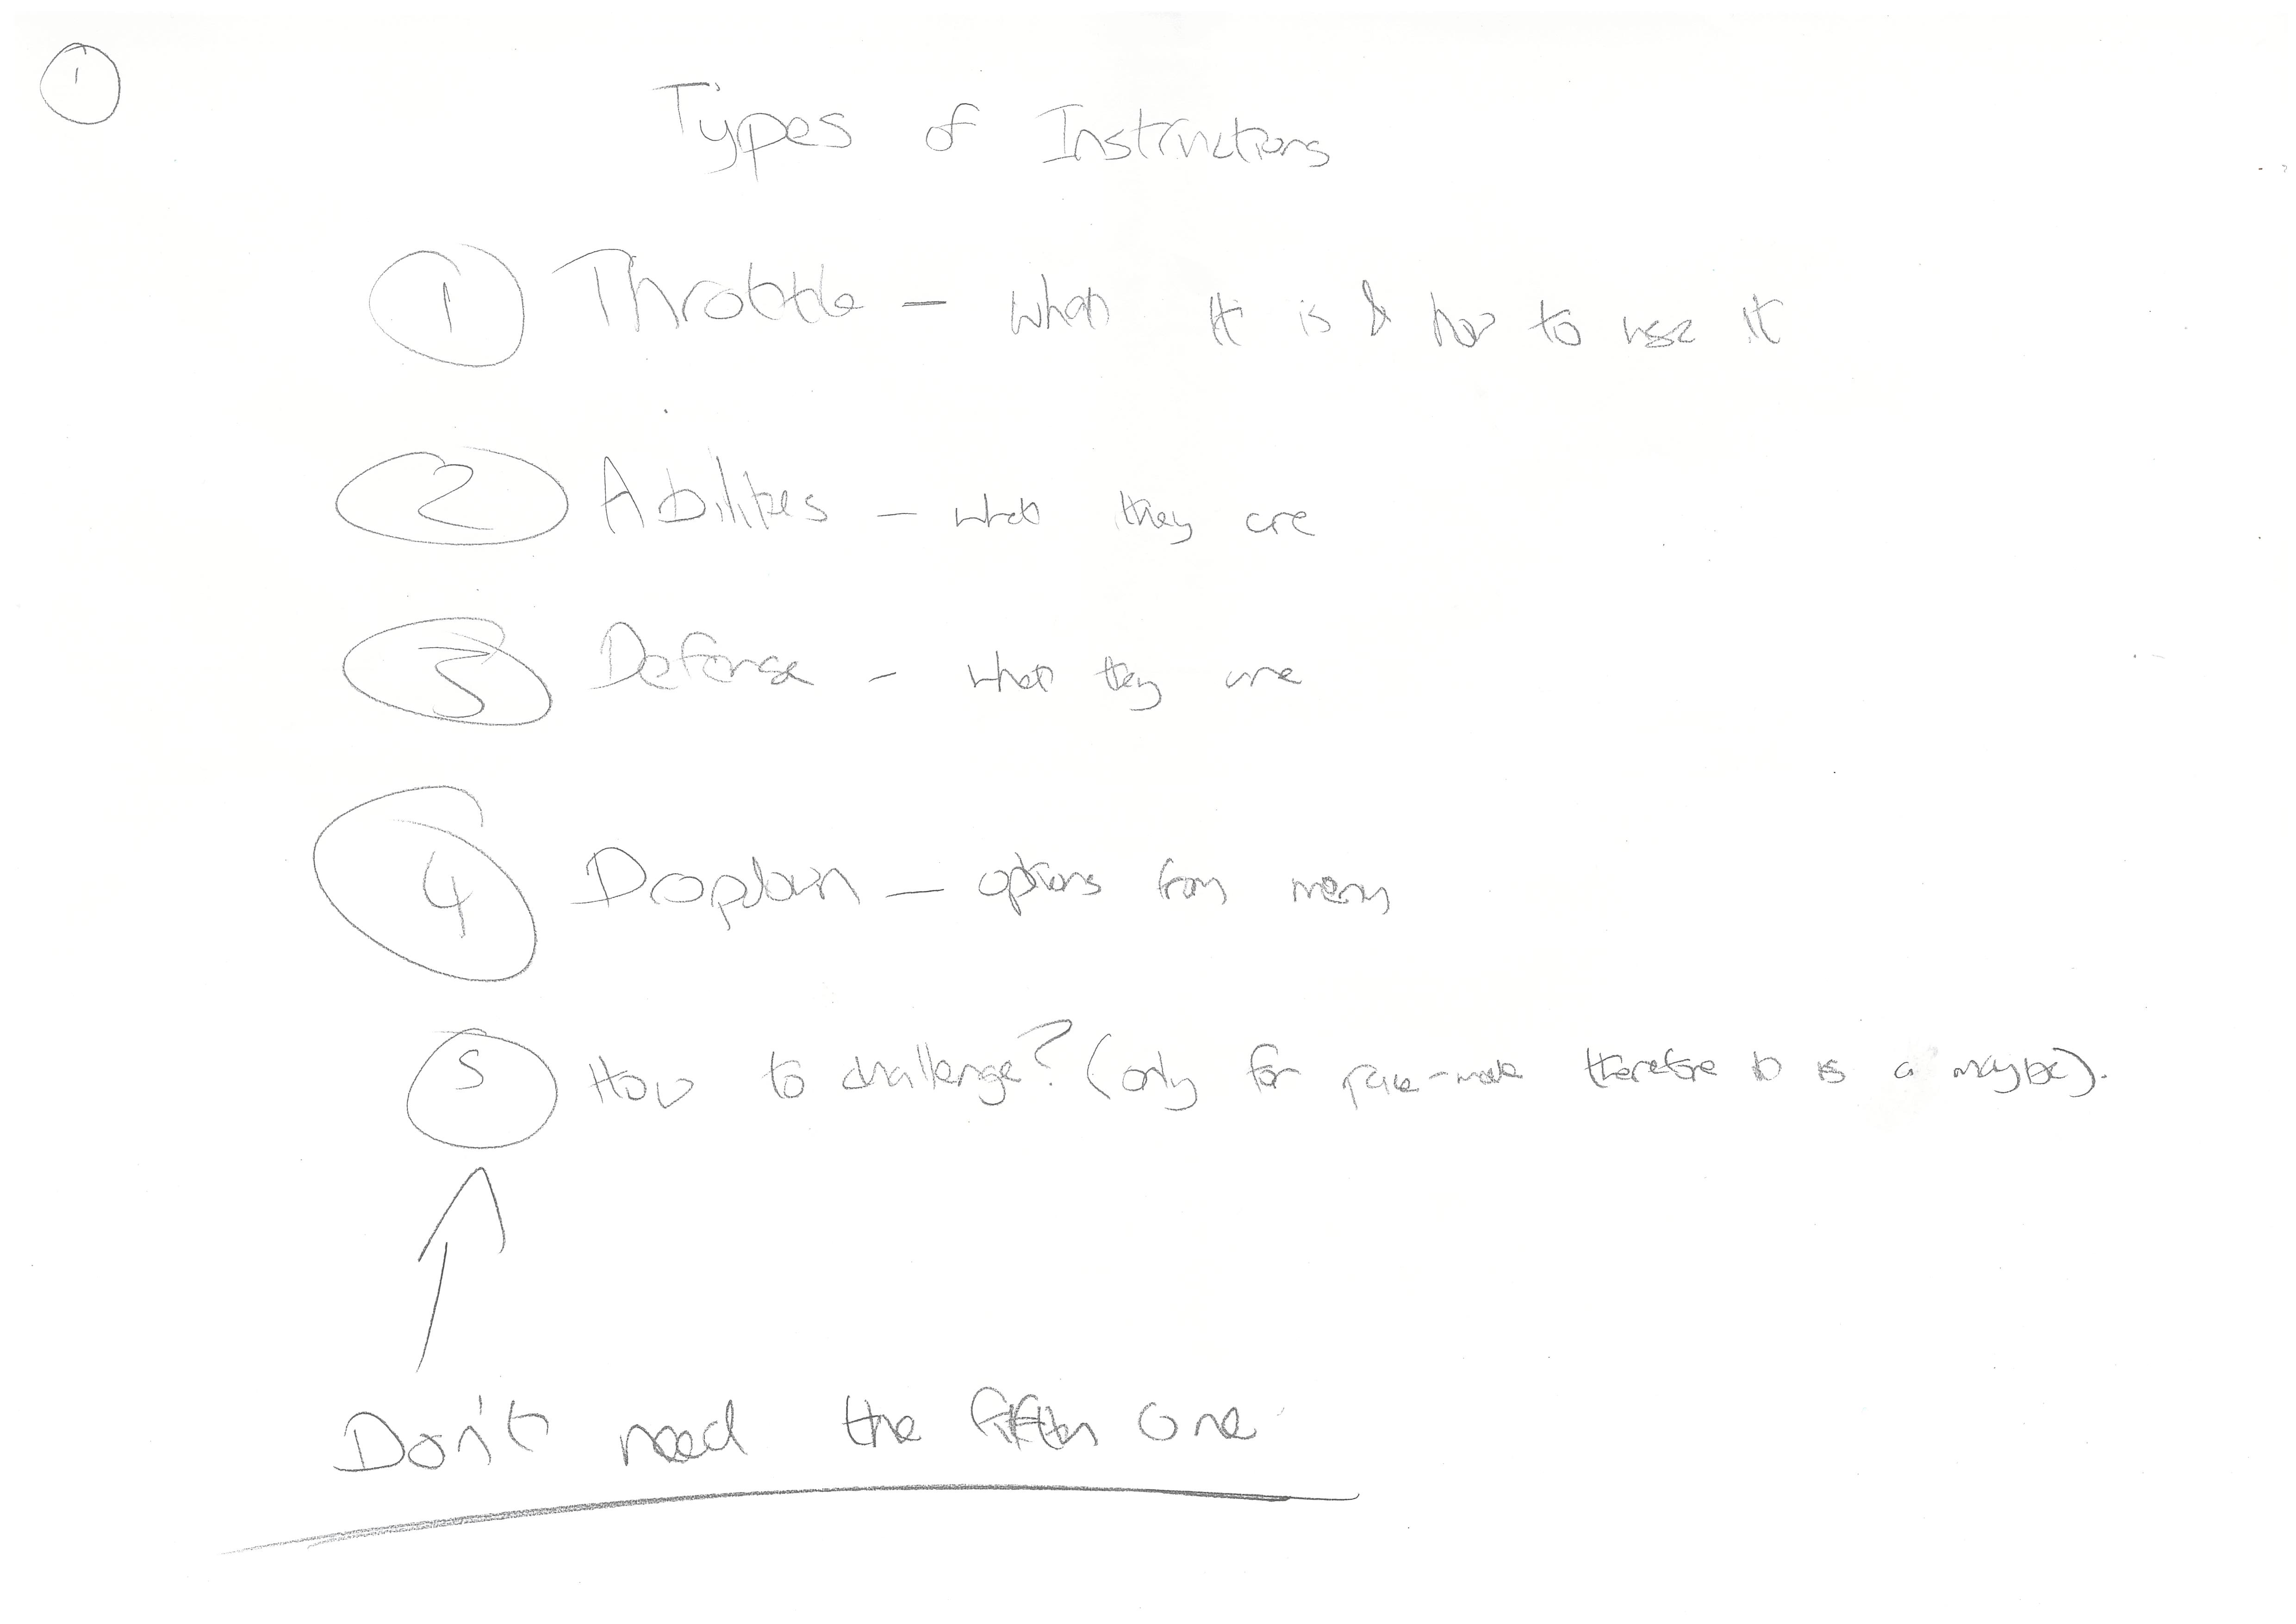 1
Types of Instructions
1 Throttle - what it is & how to use it
2 Abilities - what they are
3 Defense - what they are
4 Dropdown - options from menu
5 How to challenge? (only for race-mode therefore it is a maybe).
Don't need the fifth one